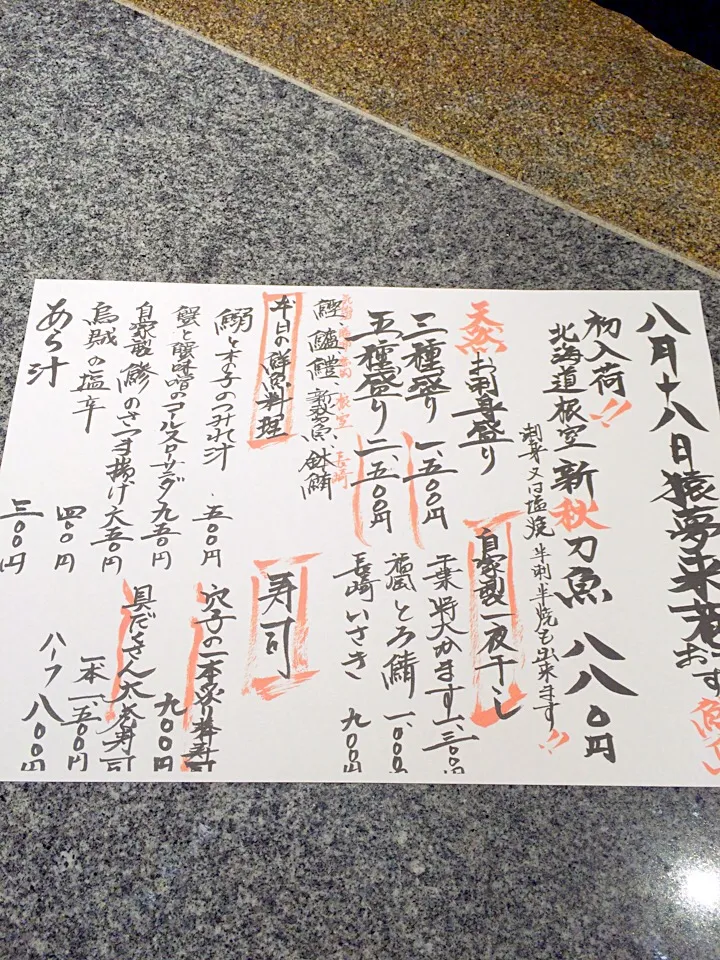 八月十八日猿夢来者
おす
初入荷!!
北海道根室新秋刀魚 八八〇円
刺身又は塩焼 半刺半焼も出来ます!!
天然お刺身盛り
三種盛り 一、五〇〇円
五種盛り 二、五〇〇円
根室 長崎
鰹、鱸、鱧、新秋刀魚、鯖
自家製一夜干し
千葉特大かます 一、三〇〇円
とろ鯖 一、〇〇〇
長崎いさき 九〇〇円
本日の鮮魚料理
鰯と木の子のつみれ汁 五〇〇円
蟹と蟹味噌のコールスローサラダ 九五〇円
自家製鯵のさつま揚げ 六五〇円
烏賊の塩辛 四〇〇円
あら汁 三〇〇円
寿司
穴子の一本 寿司 九〇〇円
具だくさん太巻寿司
一本 一、五〇〇円
ハーフ 八〇〇円